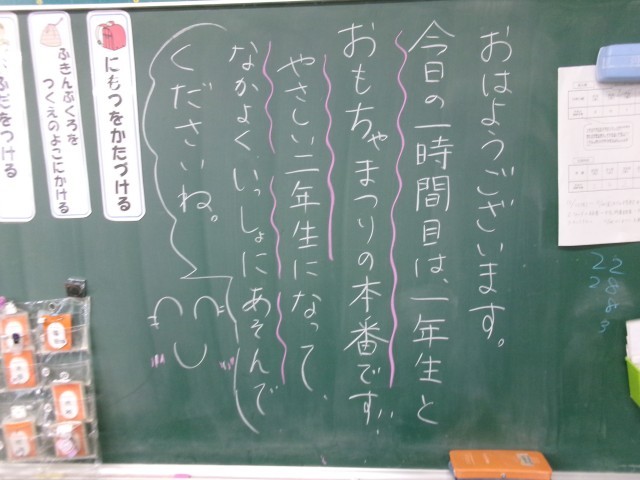 おはようございます。
今日の一時間目は、一年生と
おもちゃまつりの本番です。
やさしい二年生になって、
なかよくいっしょにあそんで
くださいね。
にもつをかたづける
ふきんぶくろを
つくえのよこにかける
ふだをつける
22
28
8
3